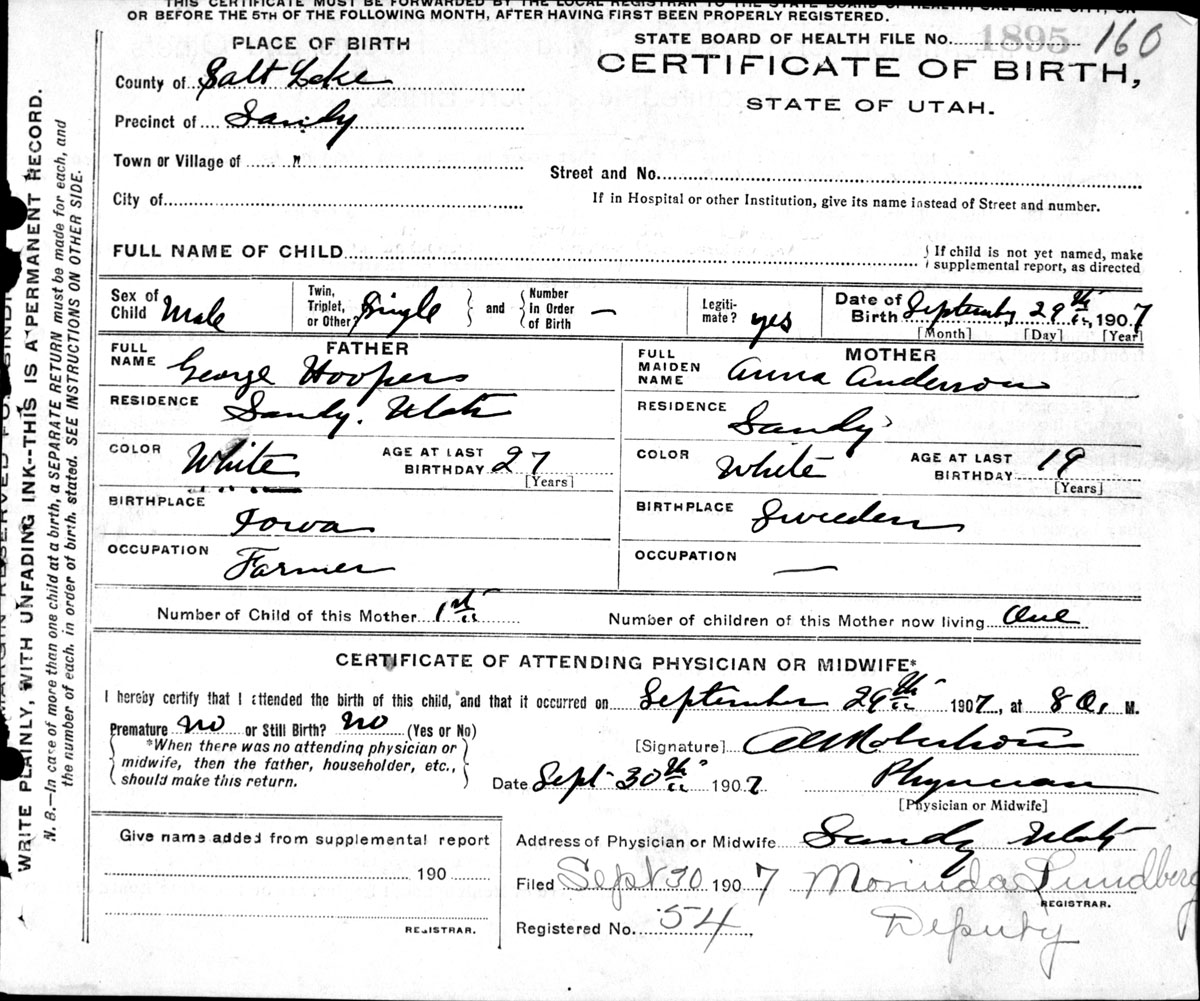 THIS CERTIFICATE MUST BE FORWARDED BY THE LOCAL REGISTRAR TO THE STATE BOARD OF HEALTH, SALT LAKE CITY, ON
OR BEFORE THE 5TH OF THE FOLLOWING MONTH, AFTER HAVING FIRST BEEN PROPERLY REGISTERED.
PLACE OF BIRTH
County of Salt Lake
Precinct of Sandy
Town or Village of "
City of
STATE BOARD OF HEALTH FILE No. 1895 160
CERTIFICATE OF BIRTH,
STATE OF UTAH.
Street and No.
If in Hospital or other Institution, give its name instead of Street and number.
FULL NAME OF CHILD
If child is not yet named, make
supplemental report, as directed
Sex of Child Male
Twin, Triplet, or Other? Single and Number In Order of Birth —
Legitimate? yes
Date of Birth September 29th, 1907
[Month] [Day] [Year]
FATHER
FULL NAME George Hoopes
RESIDENCE Sandy. Utah
COLOR White AGE AT LAST BIRTHDAY 27
[Years]
BIRTHPLACE Iowa
OCCUPATION Farmer
MOTHER
FULL MAIDEN NAME Anna Anderson
RESIDENCE Sandy
COLOR White AGE AT LAST BIRTHDAY 19
[Years]
BIRTHPLACE Sweeden
OCCUPATION —
Number of Child of this Mother 1st Number of children of this Mother now living One
CERTIFICATE OF ATTENDING PHYSICIAN OR MIDWIFE*
I hereby certify that I attended the birth of this child, and that it occurred on September 29th 1907, at 8 a. M.
Premature no or Still Birth? no (Yes or No)
*When there was no attending physician or
midwife, then the father, householder, etc.,
should make this return.
[Signature]
Date Sept 30th 1907 Physician
[Physician or Midwife]
Address of Physician or Midwife Sandy Utah
Filed Sept 30 1907 Lundberg
REGISTRAR.
Registered No. 54. Deputy
Give name added from supplemental report
190
REGISTRAR.
MARGIN RESERVED FOR BINDING
WRITE PLAINLY, WITH UNFADING INK--THIS IS A PERMANENT RECORD.
N. B.—In case of more than one child at a birth, a SEPARATE RETURN must be made for each, and
the number of each, in order of birth, stated. SEE INSTRUCTIONS ON OTHER SIDE.